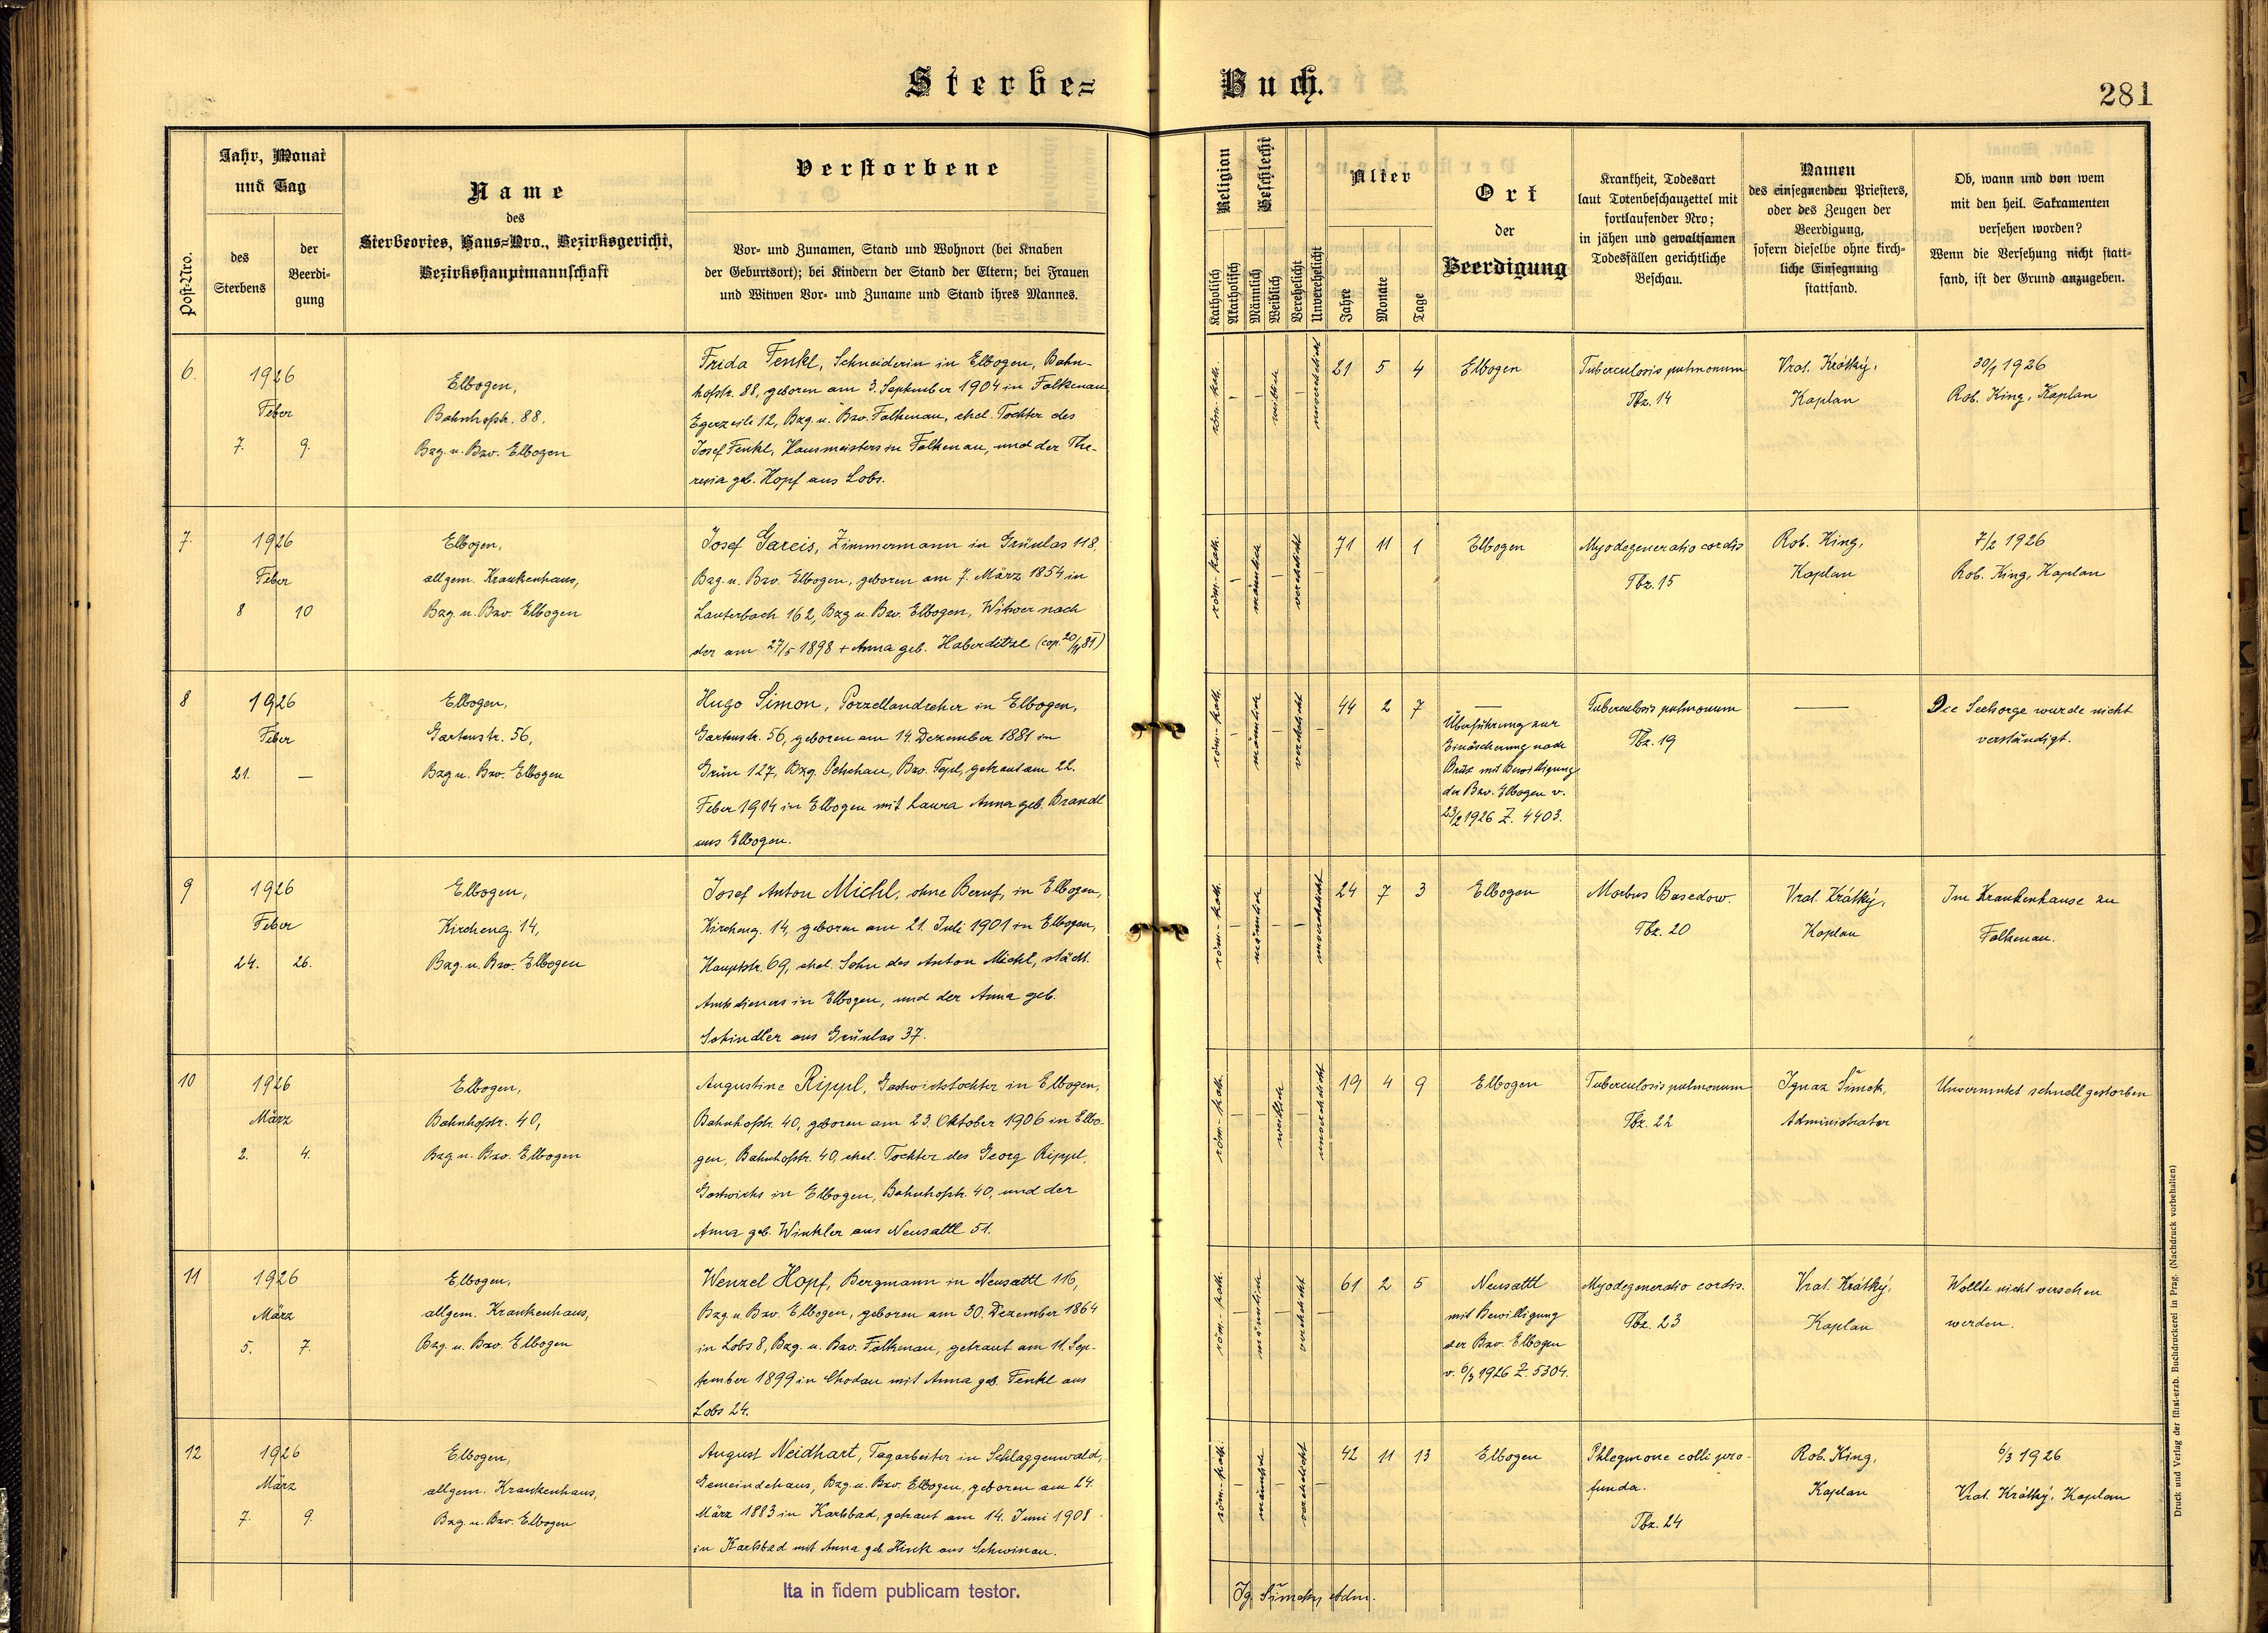 Sterbe=
Buch.
281
Post-Nro.
Jahr, Monat
und Tag
des
Sterbens
der
Beerdi-
gung
Name
des
Sterbeortes, Haus=Nro., Bezirksgericht,
Bezirkshauptmannschaft
Verstorbene
Vor- und Zunamen, Stand und Wohnort (bei Knaben
der Geburtsort); bei Kindern der Stand der Eltern; bei Frauen
und Witwen Vor- und Zuname und Stand ihres Mannes.
Religion
Katholisch
Akatholisch
Geschlecht
Männlich
Weiblich
Verehelicht
Unverehelicht
Alter
Jahre
Monate
Tage
Ort
der
Beerdigung
Krankheit, Todesart
laut Totenbeschauzettel mit
fortlaufender Nro;
in jähen und gewaltsamen
Todesfällen gerichtliche
Beschau.
Namen
des einsegnenden Priesters,
oder des Zeugen der
Beerdigung,
sofern dieselbe ohne kirch-
liche Einsegnung
stattfand.
Ob, wann und von wem
mit den heil. Sakramenten
versehen worden?
Wenn die Versehung nicht statt-
fand, ist der Grund anzugeben.
6.
1926
Feber
7. 9.
Elbogen,
Bahnhofstr. 88.
Bzg. u. Bzv. Elbogen
Frida Fenkl, Schneiderin in Elbogen, Bahn-
hofstr. 88, geboren am 3. September 1904 in Falkenau
Egerzeile 12, Bzg. u. Bzv. Falkenau, ehel. Tochter des
Josef Fenkl, Hausmeisters in Falkenau, und der The-
resia geb. Hopf aus Lobs.
röm.-kath.
–
weiblich
–
unverehelicht
21 5 4
Elbogen
Tuberculosis pulmonum
Tbz. 14
Vrat. Krátký,
Kaplan
30/1 1926
Rob. King, Kaplan
7.
1926
Feber
8 10
Elbogen,
allgem. Krankenhaus,
Bzg. u. Bzv. Elbogen
Josef Gareis, Zimmermann in Grünlas 118,
Bzg. u. Bzv. Elbogen, geboren am 7. März 1854 in
Lauterbach 162, Bzg u. Bzv. Elbogen, Witwer nach
der am 27/5 1898 + Anna geb. Haberditzl (cop. 20/11 81)
röm.-kath.
–
männlich
–
verehelicht
–
71 11 1
Elbogen
Myodegeneratio cordis
Tbz. 15
Rob. King,
Kaplan
7/2 1926
Rob. King, Kaplan
8
1926
Feber
21. —
Elbogen,
Gartenstr. 56,
Bzg u. Bzv. Elbogen
Hugo Simon, Porzellandreher in Elbogen,
Gartenstr. 56, geboren am 14. Dezember 1881 in
Grün 127, Bzg. Petschau, Bzv. Tepl, getraut am 22.
Feber 1914 in Elbogen mit Laura Anna geb. Brandl
aus Elbogen.
röm.-kath.
–
männlich
–
verehelicht
–
44 2 7
—
Überführung zur
Einäscherung nach
Brüx mit Bewilligung
der Bzv. Elbogen v.
23/2 1926 Z. 4403.
Tuberculosis pulmonum
Tbz. 19
—
Die Seelsorge wurde nicht
verständigt.
9
1926
Feber
24. 26.
Elbogen,
Kircheng. 14,
Bzg. u. Bzv. Elbogen
Josef Anton Michl, ohne Beruf, in Elbogen,
Kircheng. 14, geboren am 21. Juli 1901 in Elbogen,
Hauptstr. 69, ehel. Sohn des Anton Michl, städt.
Amtsdieners in Elbogen, und der Anna geb.
Schindler aus Grünlas 37.
röm.-kath.
–
männlich
–
–
unverehelicht
24 7 3
Elbogen
Morbus Basedow.
Tbz. 20
Vrat. Krátký,
Kaplan
Im Krankenhause zu
Falkenau.
10
1926
März
2. 4.
Elbogen,
Bahnhofstr. 40,
Bzg u. Bzv. Elbogen
Augustine Rippl, Gastwirtstochter in Elbogen,
Bahnhofstr. 40, geboren am 23. Oktober 1906 in Elbo-
gen, Bahnhofstr. 40, ehel. Tochter des Georg Rippl,
Gastwirts in Elbogen, Bahnhofstr. 40, und der
Anna geb. Winkler aus Neusattl 51.
röm.-kath.
–
–
weiblich
–
unverehelicht
19 4 9
Elbogen
Tuberculosis pulmonum
Tbz. 22
Ignaz Šimek,
Administrator
Unvermutet schnell gestorben
11
1926
März
5. 7.
Elbogen,
allgem. Krankenhaus,
Bzg. u. Bzv. Elbogen
Wenzel Hopf, Bergmann in Neusattl 116,
Bzg. u. Bzv. Elbogen, geboren am 30. Dezember 1864
in Lobs 8, Bzg. u. Bzv. Falkenau, getraut am 11. Sep-
tember 1899 in Chodau mit Anna geb. Fenkl aus
Lobs 24.
röm.-kath.
–
männlich
–
verehelicht
–
61 2 5
Neusattl
mit Bewilligung
der Bzv. Elbogen
v. 6/3 1926 Z. 5304.
Myodegeneratio cordis.
Tbz. 23
Vrat. Krátký,
Kaplan
Wollte nicht versehen
werden.
12
1926
März
7. 9.
Elbogen,
allgem. Krankenhaus,
Bzg. u. Bzv. Elbogen
August Neidhart, Tagarbeiter in Schlaggenwald,
Gemeindehaus, Bzg. u. Bzv. Elbogen, geboren am 24.
März 1883 in Karlsbad, getraut am 14. Juni 1908
in Karlsbad mit Anna geb. Hink aus Schwinau.
röm.-kath.
–
männlich
–
verehelicht
–
42 11 13
Elbogen
Phlegmone colli pro-
funda.
Tbz. 24
Rob. King,
Kaplan
6/3 1926
Vrat. Krátký, Kaplan
Ita in fidem publicam testor.
Ig. Šimek, Adm.
Druck und Verlag der fürst-erzb. Buchdruckerei in Prag. (Nachdruck vorbehalten)